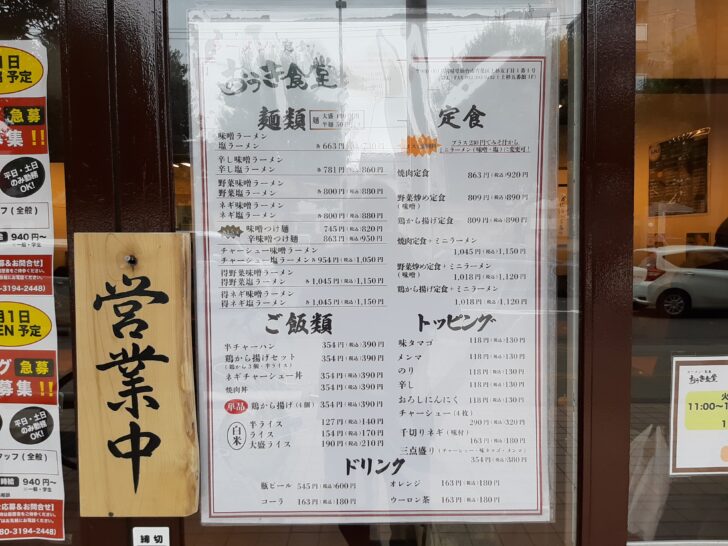 おうき食堂
麺類
麺
大盛
半麺
味噌ラーメン
塩ラーメン 各663円(税込)730円
辛し味噌ラーメン
辛し塩ラーメン 各781円(税込)860円
野菜味噌ラーメン
野菜塩ラーメン 各800円(税込)880円
ネギ味噌ラーメン
ネギ塩ラーメン 各800円(税込)880円
味噌つけ麺 745円(税込)820円
辛味噌つけ麺 863円(税込)950円
チャーシュー味噌ラーメン
チャーシュー塩ラーメン 各954円(税込)1,050円
得野菜味噌ラーメン
得野菜塩ラーメン 各1,045円(税込)1,150円
得ネギ味噌ラーメン
得ネギ塩ラーメン 各1,045円(税込)1,150円
ご飯類
半チャーハン 354円(税込)390円
鶏から揚げセット 354円(税込)390円
(鶏から3個・半ライス)
ネギチャーシュー丼 354円(税込)390円
焼肉丼 354円(税込)390円
単品 鶏から揚げ(4個) 354円(税込)390円
白米
半ライス 127円(税込)140円
ライス 154円(税込)170円
大盛ライス 190円(税込)210円
定食
プラス230円でみそ汁から
ミニラーメン(味噌・塩)に変更可!
焼肉定食 863円(税込)920円
野菜炒め定食 809円(税込)890円
(味噌)
鶏から揚げ定食 809円(税込)890円
焼肉定食+ミニラーメン
1,045円(税込)1,150円
野菜炒め定食+ミニラーメン
(味噌) 1,018円(税込)1,120円
鶏から揚げ定食+ミニラーメン
1,018円(税込)1,120円
トッピング
味タマゴ 118円(税込)130円
メンマ 118円(税込)130円
のり 118円(税込)130円
辛し 118円(税込)130円
おろしにんにく 118円(税込)130円
チャーシュー(4枚)
290円(税込)320円
千切りネギ(味付)
163円(税込)180円
三点盛り(チャーシュー・味タマゴ・メンマ)
354円(税込)380円
ドリンク
瓶ビール 545円(税込)600円
コーラ 163円(税込)180円
オレンジ 163円(税込)180円
ウーロン茶 163円(税込)180円
営業中
締切
1日
予定
急募
集!!
平日・土日
のみ勤務
OK!
ッフ(全般)
940円~
一般・学生
募&お問合せ
-3194-2448)
月1日
EN予定
グ 急募
募集!!
平日・土日
のみ勤務
OK!
タッフ(全般)
時給 940円~
一般・学生
応募&お問合せ
80-3194-2448)
おうき食堂
火
11:00~1